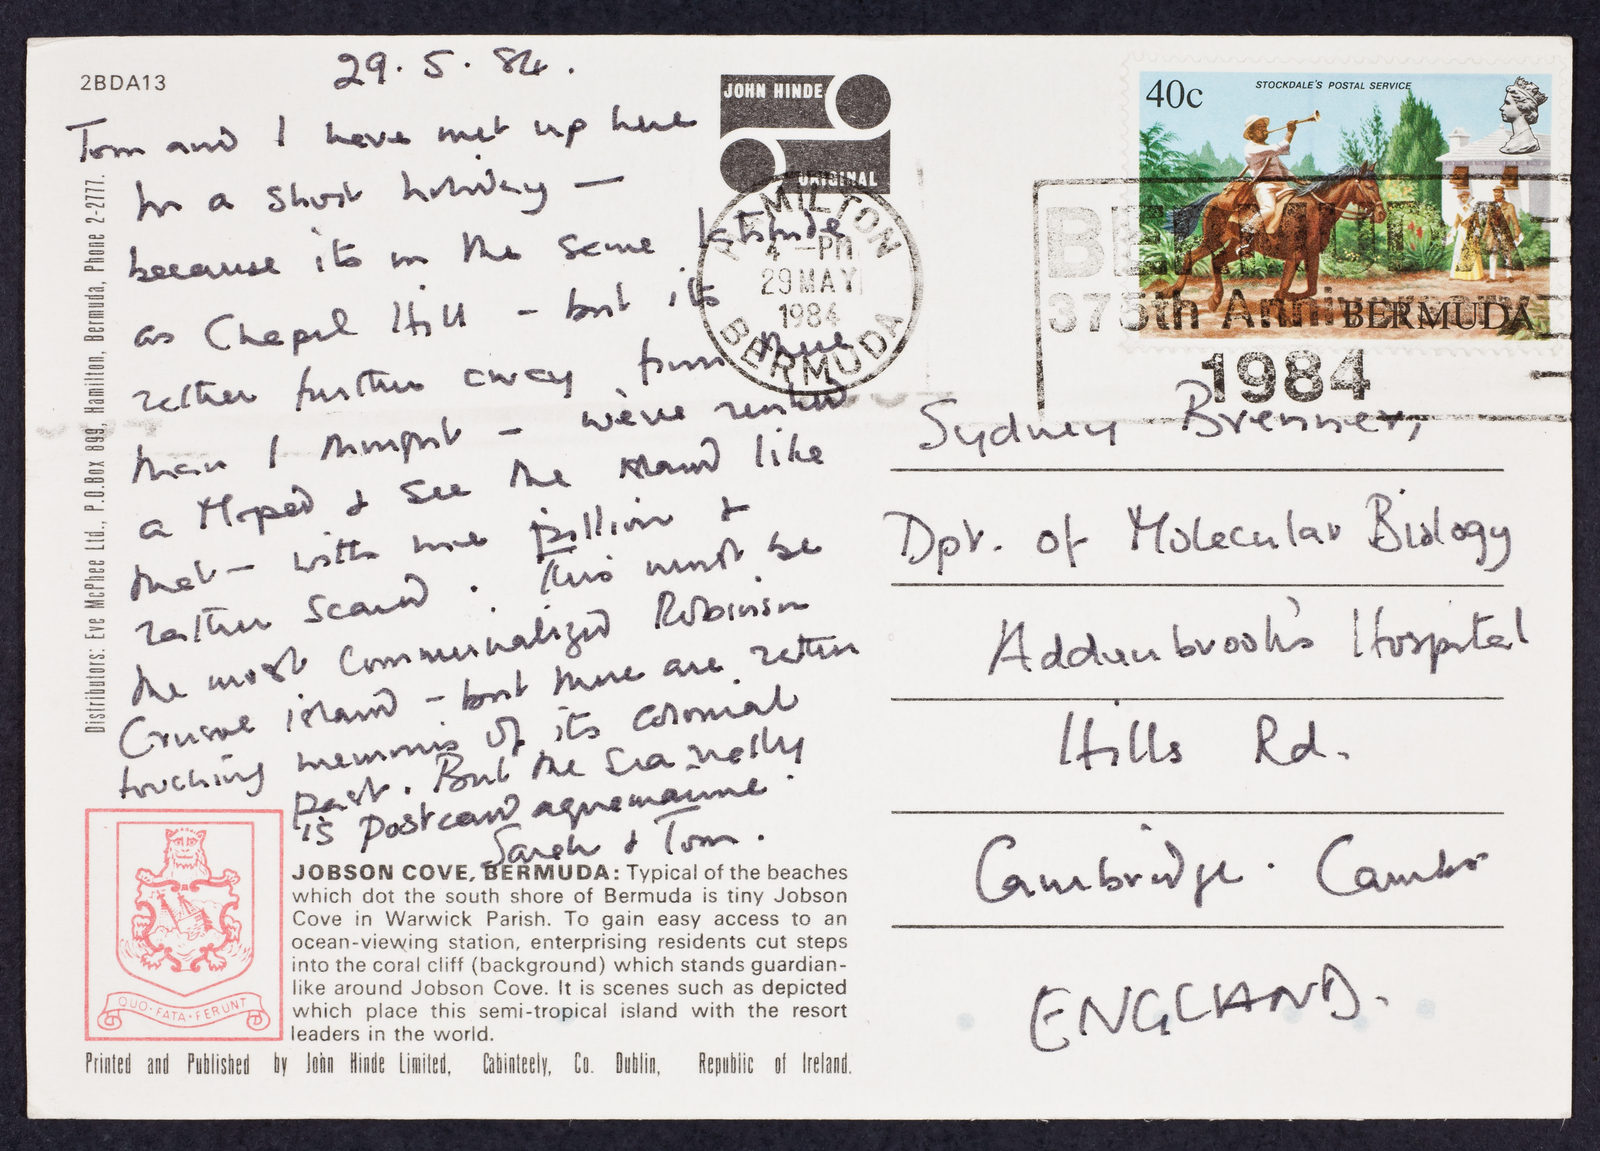 2BDA13
29. 5. 84.
Tom and I have met up here
for a short holiday —
because its on the same latitude
as Chapel Hill - but its
rather further away from there
than I thought - we've rented
a Moped & see the island like
that - with me pillion &
rather scared. This must be
the most commercialized Robinson
Crusoe island - but there are rather
touching memories of its colonial
past. But the sea really
is postcard aquamarine.
Sarah & Tom.
Distributors: Eve McPhee Ltd., P.O.Box 899, Hamilton, Bermuda, Phone 2-2777.
JOHN HINDE
ORIGINAL
HAMILTON
4 -PM
29 MAY
1984
BERMUDA
40c
STOCKDALE'S POSTAL SERVICE
BERMUDA
BERMUDA
375th Anniversary
1984
Sydney Brenner,
Dpt. of Molecular Biology
Addenbrook's Hospital
Hills Rd.
Cambridge. Cambs
ENGLAND.
QUO FATA FERUNT
JOBSON COVE, BERMUDA: Typical of the beaches
which dot the south shore of Bermuda is tiny Jobson
Cove in Warwick Parish. To gain easy access to an
ocean-viewing station, enterprising residents cut steps
into the coral cliff (background) which stands guardian-
like around Jobson Cove. It is scenes such as depicted
which place this semi-tropical island with the resort
leaders in the world.
Printed and Published by John Hinde Limited, Cabinteely, Co. Dublin, Republic of Ireland.